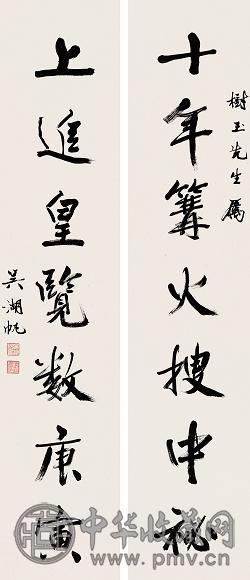 樹玉先生屬
十年篝火搜中祕
上進皇覽數庚寅
吳湖帆
中华收藏网
www.pmv.cn